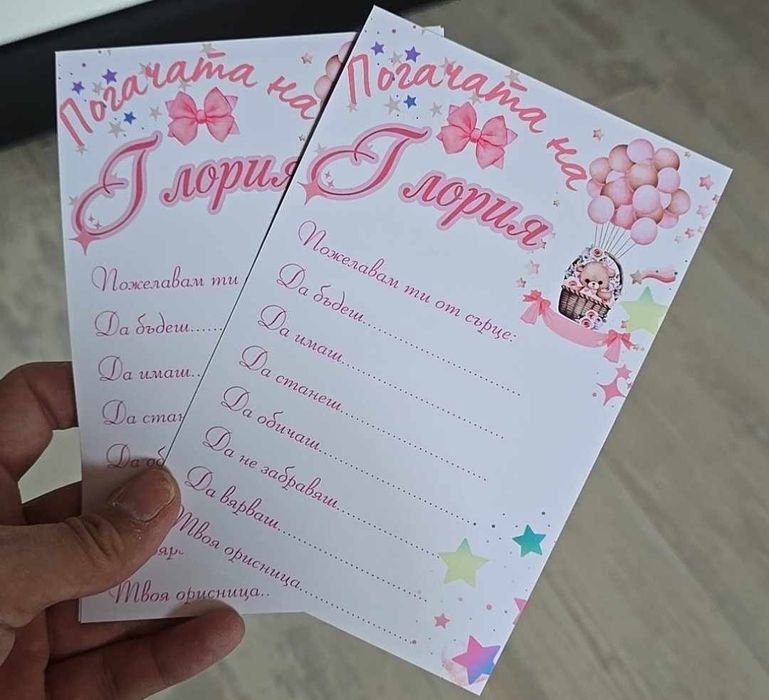 Погачата на
Глория
Пожелавам ти
Да бъдеш......
Да имаш..
Да стан
Да об
вяр
Твоя орисница..
Погачата на
Глория
Пожелавам ти от сърце:
Да бъдеш..............................
Да имаш..............................
Да станеш..............................
Да обичаш..............................
Да не забравяш....................
Да вярваш..............................
Твоя орисница....................